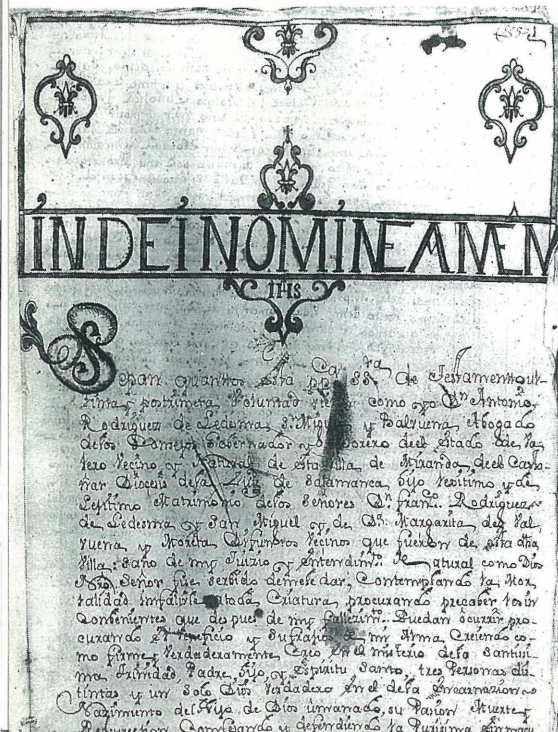 IN DEI NOMINE AMEN
IHS
Sepan quantos esta ppca ssra de Testamento ul-
tima y postrimera Voluntad vieren como yo Dn Antonio
Rodriguez de Ledesma Sn Miguel y Balvuena Abogado
delos Consejos Gobernador y Thesorero deel Estado de
Vecino y Natural de esta Villa de Miranda deel Casta-
ñar Diocesis dela Ziud de Salamanca hijo lexitimo y de
Lexitimo Matrimonio delos Señores Dn Franco Rodriguez
de Ledesma y San Miguel y de Da Margarita de Val-
vuena y Moreta Difuntos Vecinos que fueron de esta dha
Villa: sano de my Juizio y Entendimto Natural como Dios
Nro Señor fue serbido demele dar, Contemplando la Mor-
talidad imfalible atoda Criatura, procurando precaber los in-
Conbenientes que despues de my fallezimto Puedan ocurrir pro-
curando el veneficio y Sufrajio de mi Alma Creiendo co-
mo firme y Verdaderamente Creo en el misterio dela Santisi-
ma Trinidad, Padre, hijo, y Espiritu Santo, tres Personas dis-
tintas y un Solo Dios Verdadero en el dela Encarnazion
Nazimiento del Hijo de Dios umanado, su Pasion Muerte y
Resureccion, Confesando y defendiendo la Purisima